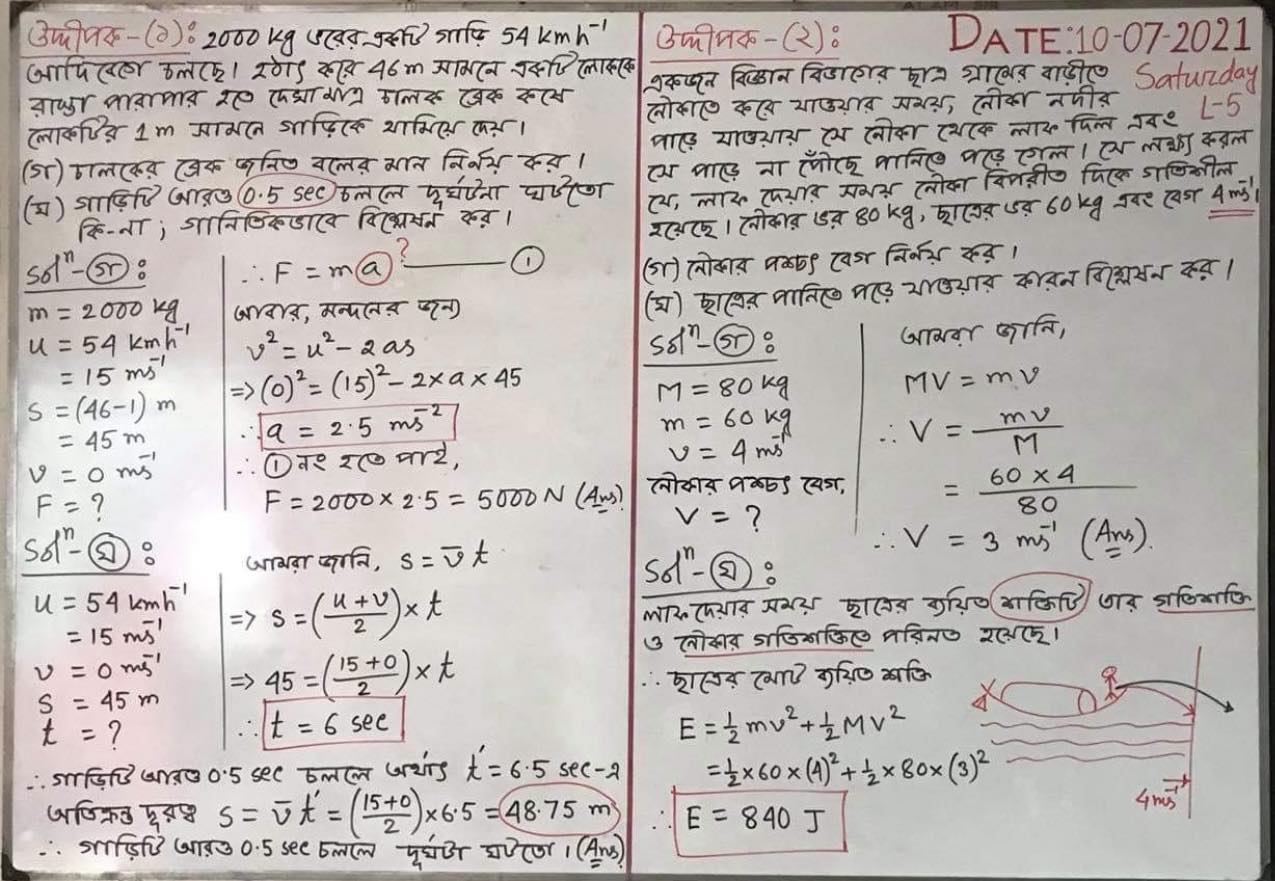 উদ্দীপক-(১): 2000 kg ভরের একটি গাড়ি 54 kmh⁻¹
আদিবেগে চলছে। হঠাৎ করে 46 m সামনে একটি লোককে
রাস্তা পারাপার হতে দেখা মাত্র চালক ব্রেক কষে
লোকটির 1 m সামনে গাড়িকে থামিয়ে দেয়।
(গ) চালকের ব্রেক জনিত বলের মান নির্নয় কর।
(ঘ) গাড়িটি আরও 0.5 sec চললে দূর্ঘটনা ঘটতো
কি-না; গানিতিকভাবে বিশ্লেষন কর।
Solⁿ-(গ):
m = 2000 kg
u = 54 kmh⁻¹
= 15 ms⁻¹
S = (46-1) m
= 45 m
v = 0 ms⁻¹
F = ?
∴ F = ma ? ——— ①
আবার, মন্দনের জন্য
v² = u² - 2as
=> (0)² = (15)² - 2 × a × 45
∴ a = 2.5 ms⁻²
∴ ① নং হতে পাই,
F = 2000 × 2.5 = 5000 N (Ans)
Solⁿ-(ঘ):
u = 54 kmh⁻¹
= 15 ms⁻¹
v = 0 ms⁻¹
S = 45 m
t = ?
আমরা জানি, s = v̄ t
=> s = (u+v/2) × t
=> 45 = (15+0/2) × t
∴ t = 6 sec
∴ গাড়িটি আরও 0.5 sec চললে অর্থাৎ t′ = 6.5 sec-এ
অতিক্রান্ত দূরত্ব S = v̄ t′ = (15+0/2) × 6.5 = 48.75 m
∴ গাড়িটি আরও 0.5 sec চললে দূর্ঘটা ঘটতো। (Ans)
উদ্দীপক-(২):
DATE:10-07-2021
Saturday
L-5
একজন বিজ্ঞান বিভাগের ছাত্র গ্রামের বাড়ীতে
নৌকাতে করে যাওয়ার সময়, নৌকা নদীর
পাড়ে যাওয়ায় সে নৌকা থেকে লাফ দিল এবং
সে পাড়ে না পৌঁছে পানিতে পড়ে গেল। সে লক্ষ্য করল
যে, লাফ দেয়ার সময় নৌকা বিপরীত দিকে গতিশীল
হয়েছে। নৌকার ভর 80 kg, ছাত্রের ভর 60 kg এবং বেগ 4 ms⁻¹।
(গ) নৌকার পশ্চাৎ বেগ নির্নয় কর।
(ঘ) ছাত্রের পানিতে পড়ে যাওয়ার কারন বিশ্লেষন কর।
Solⁿ-(গ):
M = 80 kg
m = 60 kg
v = 4 ms⁻¹
নৌকার পশ্চাৎ বেগ,
V = ?
আমরা জানি,
MV = mv
∴ V = mv/M
= 60 × 4/80
∴ V = 3 ms⁻¹ (Ans).
Solⁿ-(ঘ):
লাফ দেয়ার সময় ছাত্রের ব্যয়িত শক্তিটি তার গতিশক্তি
ও নৌকার গতিশক্তিতে পরিনত হয়েছে।
∴ ছাত্রের মোট ব্যয়িত শক্তি
E = ½ mv² + ½ MV²
= ½ × 60 × (4)² + ½ × 80 × (3)²
∴ E = 840 J
4 ms⁻¹